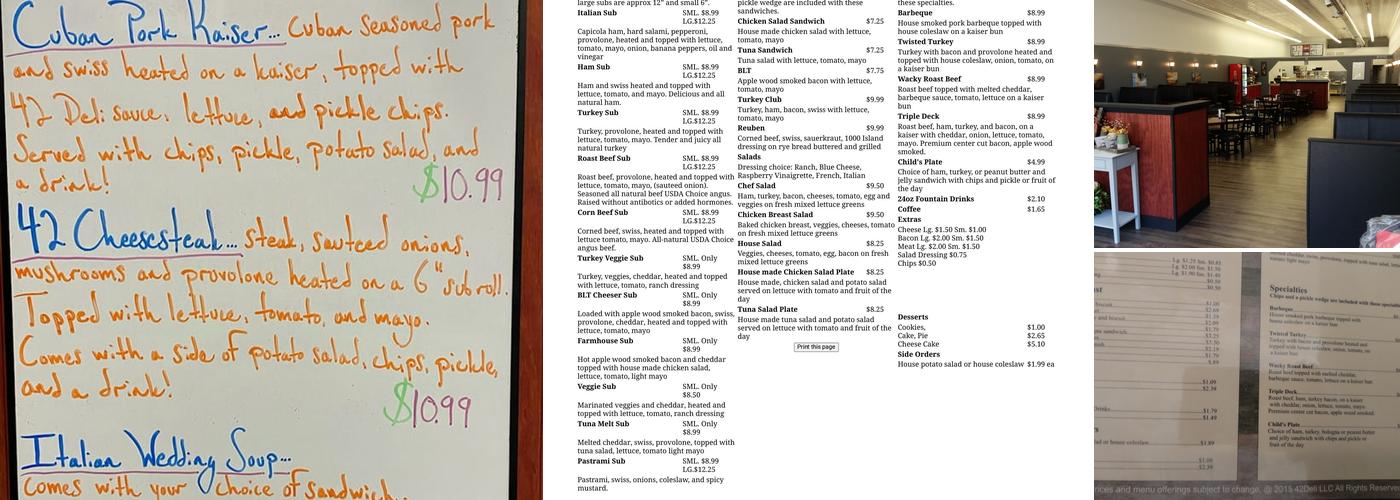 Cuban Pork Kaiser... Cuban seasoned pork
and swiss heated on a kaiser, topped with
42 Deli sauce, lettuce, and pickle chips.
Served with chips, pickle, potato salad, and
a drink!
$10.99
42 Cheesesteak... Steak, sauteed onions,
mushrooms and provolone heated on a 6" sub roll.
Topped with lettuce, tomato, and mayo.
Comes with a side of potato salad, chips, pickle,
and a drink!
$10.99
Italian Wedding Soup...
Comes with your choice of sandwich...
large subs are approx 12" and small 6".
Italian Sub SML. $8.99
LG.$12.25
Capicola ham, hard salami, pepperoni,
provolone, heated and topped with lettuce,
tomato, mayo, onion, banana peppers, oil and
vinegar
Ham Sub SML. $8.99
LG.$12.25
Ham and swiss heated and topped with
lettuce, tomato, and mayo. Delicious and all
natural ham.
Turkey Sub SML. $8.99
LG.$12.25
Turkey, provolone, heated and topped with
lettuce, tomato, mayo. Tender and juicy all
natural turkey
Roast Beef Sub SML. $8.99
LG.$12.25
Roast beef, provolone, heated and topped with
lettuce, tomato, mayo, (sauteed onion).
Seasoned all natural beef USDA Choice angus.
Raised without antibiotics or added hormones.
Corn Beef Sub SML. $8.99
LG.$12.25
Corned beef, swiss, heated and topped with
lettuce tomato, mayo. All-natural USDA Choice
angus beef.
Turkey Veggie Sub SML. Only
$8.99
Turkey, veggies, cheddar, heated and topped
with lettuce, tomato, ranch dressing
BLT Cheeser Sub SML. Only
$8.99
Loaded with apple wood smoked bacon, swiss,
provolone, cheddar, heated and topped with
lettuce, tomato, mayo
Farmhouse Sub SML. Only
$8.99
Hot apple wood smoked bacon and cheddar
topped with house made chicken salad,
lettuce, tomato, light mayo
Veggie Sub SML. Only
$8.50
Marinated veggies and cheddar, heated and
topped with lettuce, tomato, ranch dressing
Tuna Melt Sub SML. Only
$8.99
Melted cheddar, swiss, provolone, topped with
tuna salad, lettuce, tomato light mayo
Pastrami Sub SML. $8.99
LG.$12.25
Pastrami, swiss, onions, coleslaw, and spicy
mustard.
pickle wedge are included with these
sandwiches.
Chicken Salad Sandwich $7.25
House made chicken salad with lettuce,
tomato, mayo
Tuna Sandwich $7.25
Tuna salad with lettuce, tomato, mayo
BLT $7.75
Apple wood smoked bacon with lettuce,
tomato, mayo
Turkey Club $9.99
Turkey, ham, bacon, swiss with lettuce,
tomato, mayo
Reuben $9.99
Corned beef, swiss, sauerkraut, 1000 Island
dressing on rye bread buttered and grilled
Salads
Dressing choice: Ranch, Blue Cheese,
Raspberry Vinaigrette, French, Italian
Chef Salad $9.50
Ham, turkey, bacon, cheeses, tomato, egg and
veggies on fresh mixed lettuce greens
Chicken Breast Salad $9.50
Baked chicken breast, veggies, cheeses, tomato
on fresh mixed lettuce greens
House Salad $8.25
Veggies, cheeses, tomato, egg, bacon on fresh
mixed lettuce greens
House made Chicken Salad Plate $8.25
House made, chicken salad and potato salad
served on lettuce with tomato and fruit of the
day
Tuna Salad Plate $8.25
House made tuna salad and potato salad
served on lettuce with tomato and fruit of the
day
Print this page
these specialties.
Barbeque $8.99
House smoked pork barbeque topped with
house coleslaw on a kaiser bun
Twisted Turkey $8.99
Turkey with bacon and provolone heated and
topped with house coleslaw, onion, tomato, on
a kaiser bun
Wacky Roast Beef $8.99
Roast beef topped with melted cheddar,
barbeque sauce, tomato, lettuce on a kaiser
bun
Triple Deck $8.99
Roast beef, ham, turkey, and bacon, on a
kaiser with cheddar, onion, lettuce, tomato,
mayo. Premium center cut bacon, apple wood
smoked.
Child's Plate $4.99
Choice of ham, turkey, or peanut butter and
jelly sandwich with chips and pickle or fruit of
the day
24oz Fountain Drinks $2.10
Coffee $1.65
Extras
Cheese Lg. $1.50 Sm. $1.00
Bacon Lg. $2.00 Sm. $1.50
Meat Lg. $2.00 Sm. $1.50
Salad Dressing $0.75
Chips $0.50
Desserts
Cookies, $1.00
Cake, Pie $2.65
Cheese Cake $5.10
Side Orders
House potato salad or house coleslaw $1.99 ea
Specialties
Chips and a pickle wedge are included with these
Barbeque
House smoked pork barbeque topped with
house coleslaw on a kaiser bun
Twisted Turkey
Turkey with bacon and provolone heated and
topped with house coleslaw, onion, tomato, on
a kaiser bun
Wacky Roast Beef
Roast beef topped with melted cheddar,
barbeque sauce, tomato, lettuce on a kaiser bun
Triple Deck
Roast beef, ham, turkey bacon, on a kaiser
with cheddar, onion, lettuce, tomato, mayo.
Premium center cut bacon, apple wood smoked.
Child's Plate
Choice of ham, turkey, bologna or peanut butter
and jelly sandwich with chips and pickle or
fruit of the day
rices and menu offerings subject to change. @ 2015 42Deli LLC All Rights Reserve